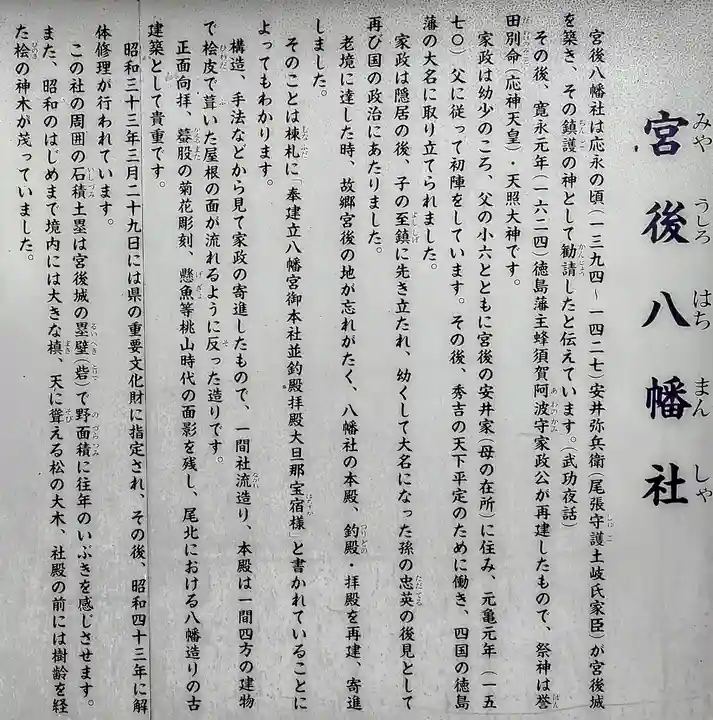 宮後八幡社
みや うしろ はち まん しゃ
宮後八幡社は応永の頃(一三九四~一四二七)安井弥兵衛(尾張守護土岐氏家臣)が宮後城
を築き、その鎮護の神として勧請したと伝えています。(武功夜話)
その後、寛永元年(一六二四)徳島藩主蜂須賀阿波守家政公が再建したもので、祭神は誉
田別命(応神天皇)・天照大神です。
家政は幼少のころ、父の小六とともに宮後の安井家(母の在所)に住み、元亀元年(一五
七〇)父に従って初陣をしています。その後、秀吉の天下平定のために働き、四国の徳島
藩の大名に取り立てられました。
家政は隠居の後、子の至鎮に先き立たれ、幼くして大名になった孫の忠英の後見として
再び国の政治にあたりました。
老境に達した時、故郷宮後の地が忘れがたく、八幡社の本殿、釣殿・拝殿を再建、寄進
しました。
そのことは棟札に「奉建立八幡宮御本社並釣殿拝殿大旦那宝宿様」と書かれていることに
よってもわかります。
構造、手法などから見て家政の寄進したもので、一間社流造り、本殿は一間四方の建物
で桧皮で葺いた屋根の面が流れるように反った造りです。
正面向拝、蟇股の菊花彫刻、懸魚等桃山時代の面影を残し、尾北における八幡造りの古
建築として貴重です。
昭和三十三年三月二十九日には県の重要文化財に指定され、その後、昭和四十三年に解
体修理が行われています。
この社の周囲の石積土塁は宮後城の塁壁(砦)で野面積に往年のいぶきを感じさせます。
また、昭和のはじめまで境内には大きな槙、天に聳える松の大木、社殿の前には樹齢を経
た桧の神木が茂っていました。